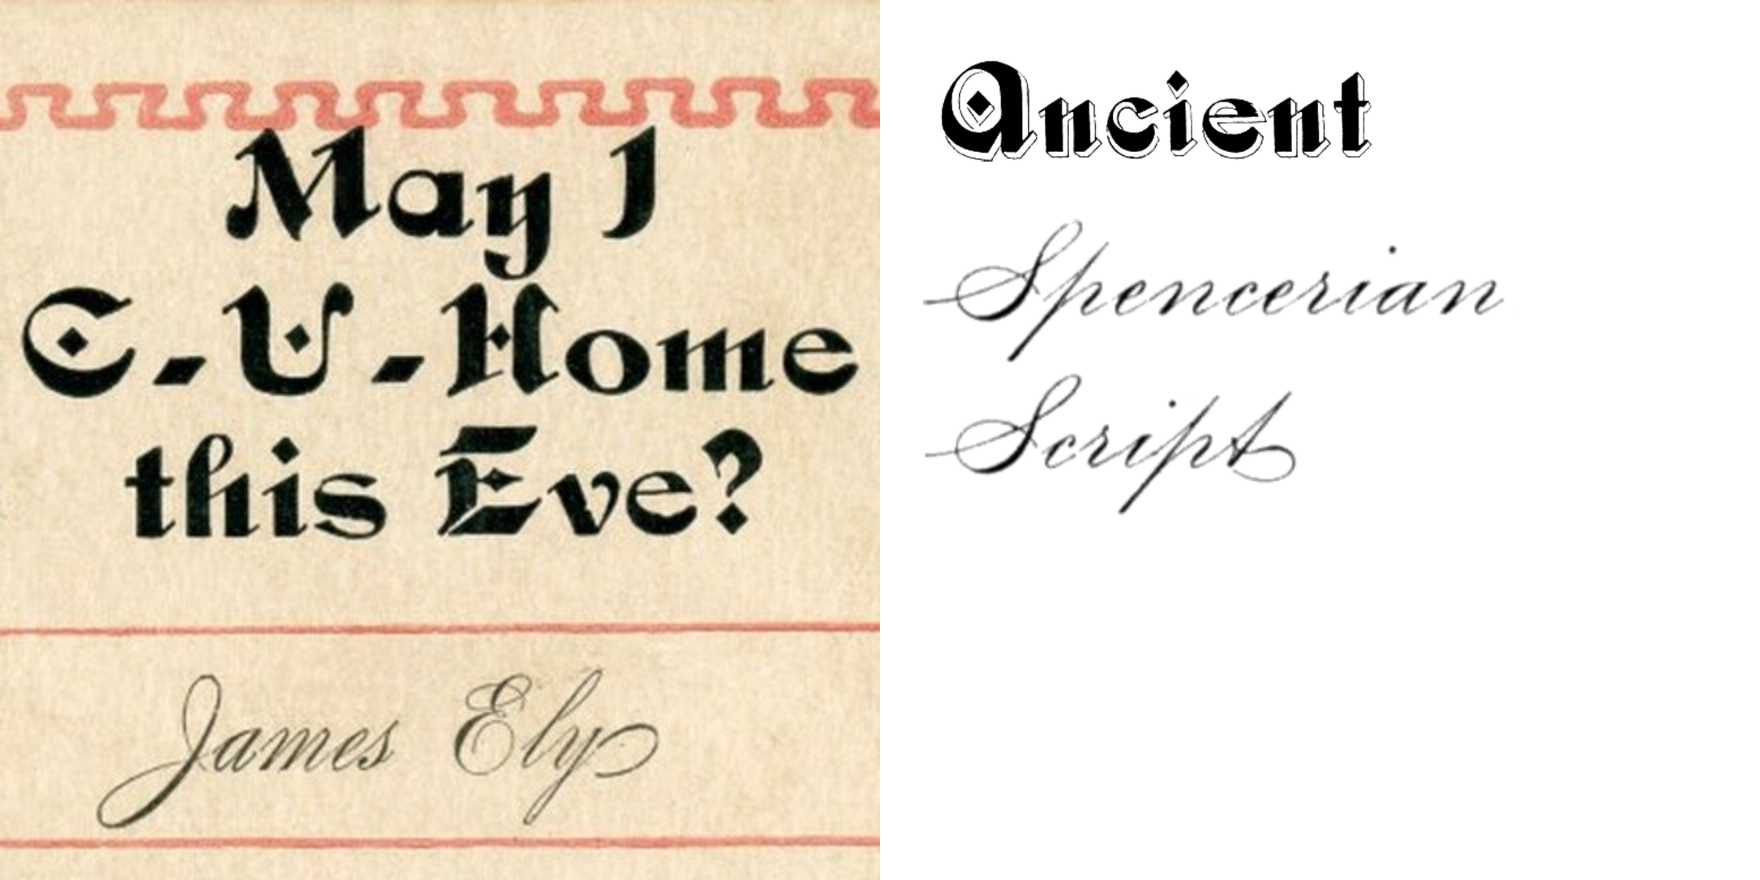 May I
C-U-Home
this Eve?
James Ely
Ancient
Spencerian
Script